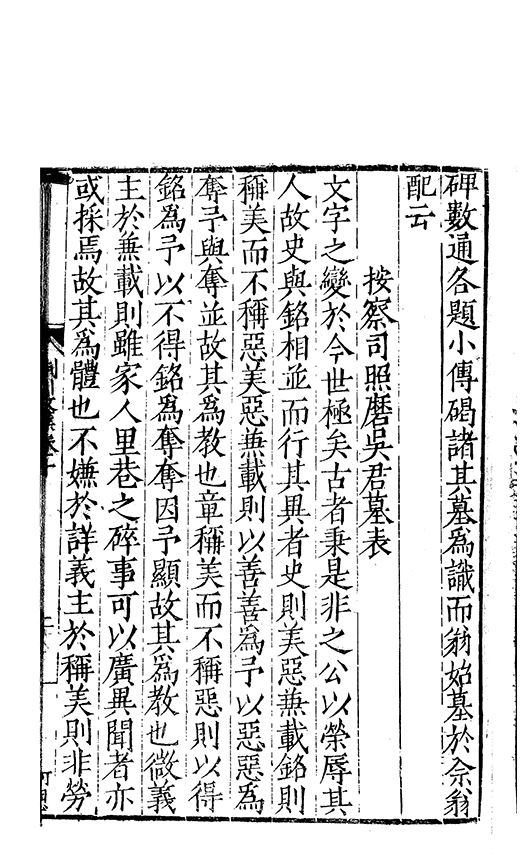 碑數通各題小傳碣諸其墓爲識而翁始墓於佘翁
配云
按察司照磨吳君墓表
文字之變於今世極矣古者秉是非之公以榮辱其
人故史與銘相並而行其異者史則美惡兼載銘則
稱美而不稱惡美惡兼載則以善善爲予以惡惡爲
奪予與奪並故其爲教也章稱美而不稱惡則以得
銘爲予以不得銘爲奪奪因予顯故其爲教也微義
主於兼載則雖家人里巷之碎事可以廣異聞者亦
或採焉故其爲體也不嫌於詳義主於稱美則非勞